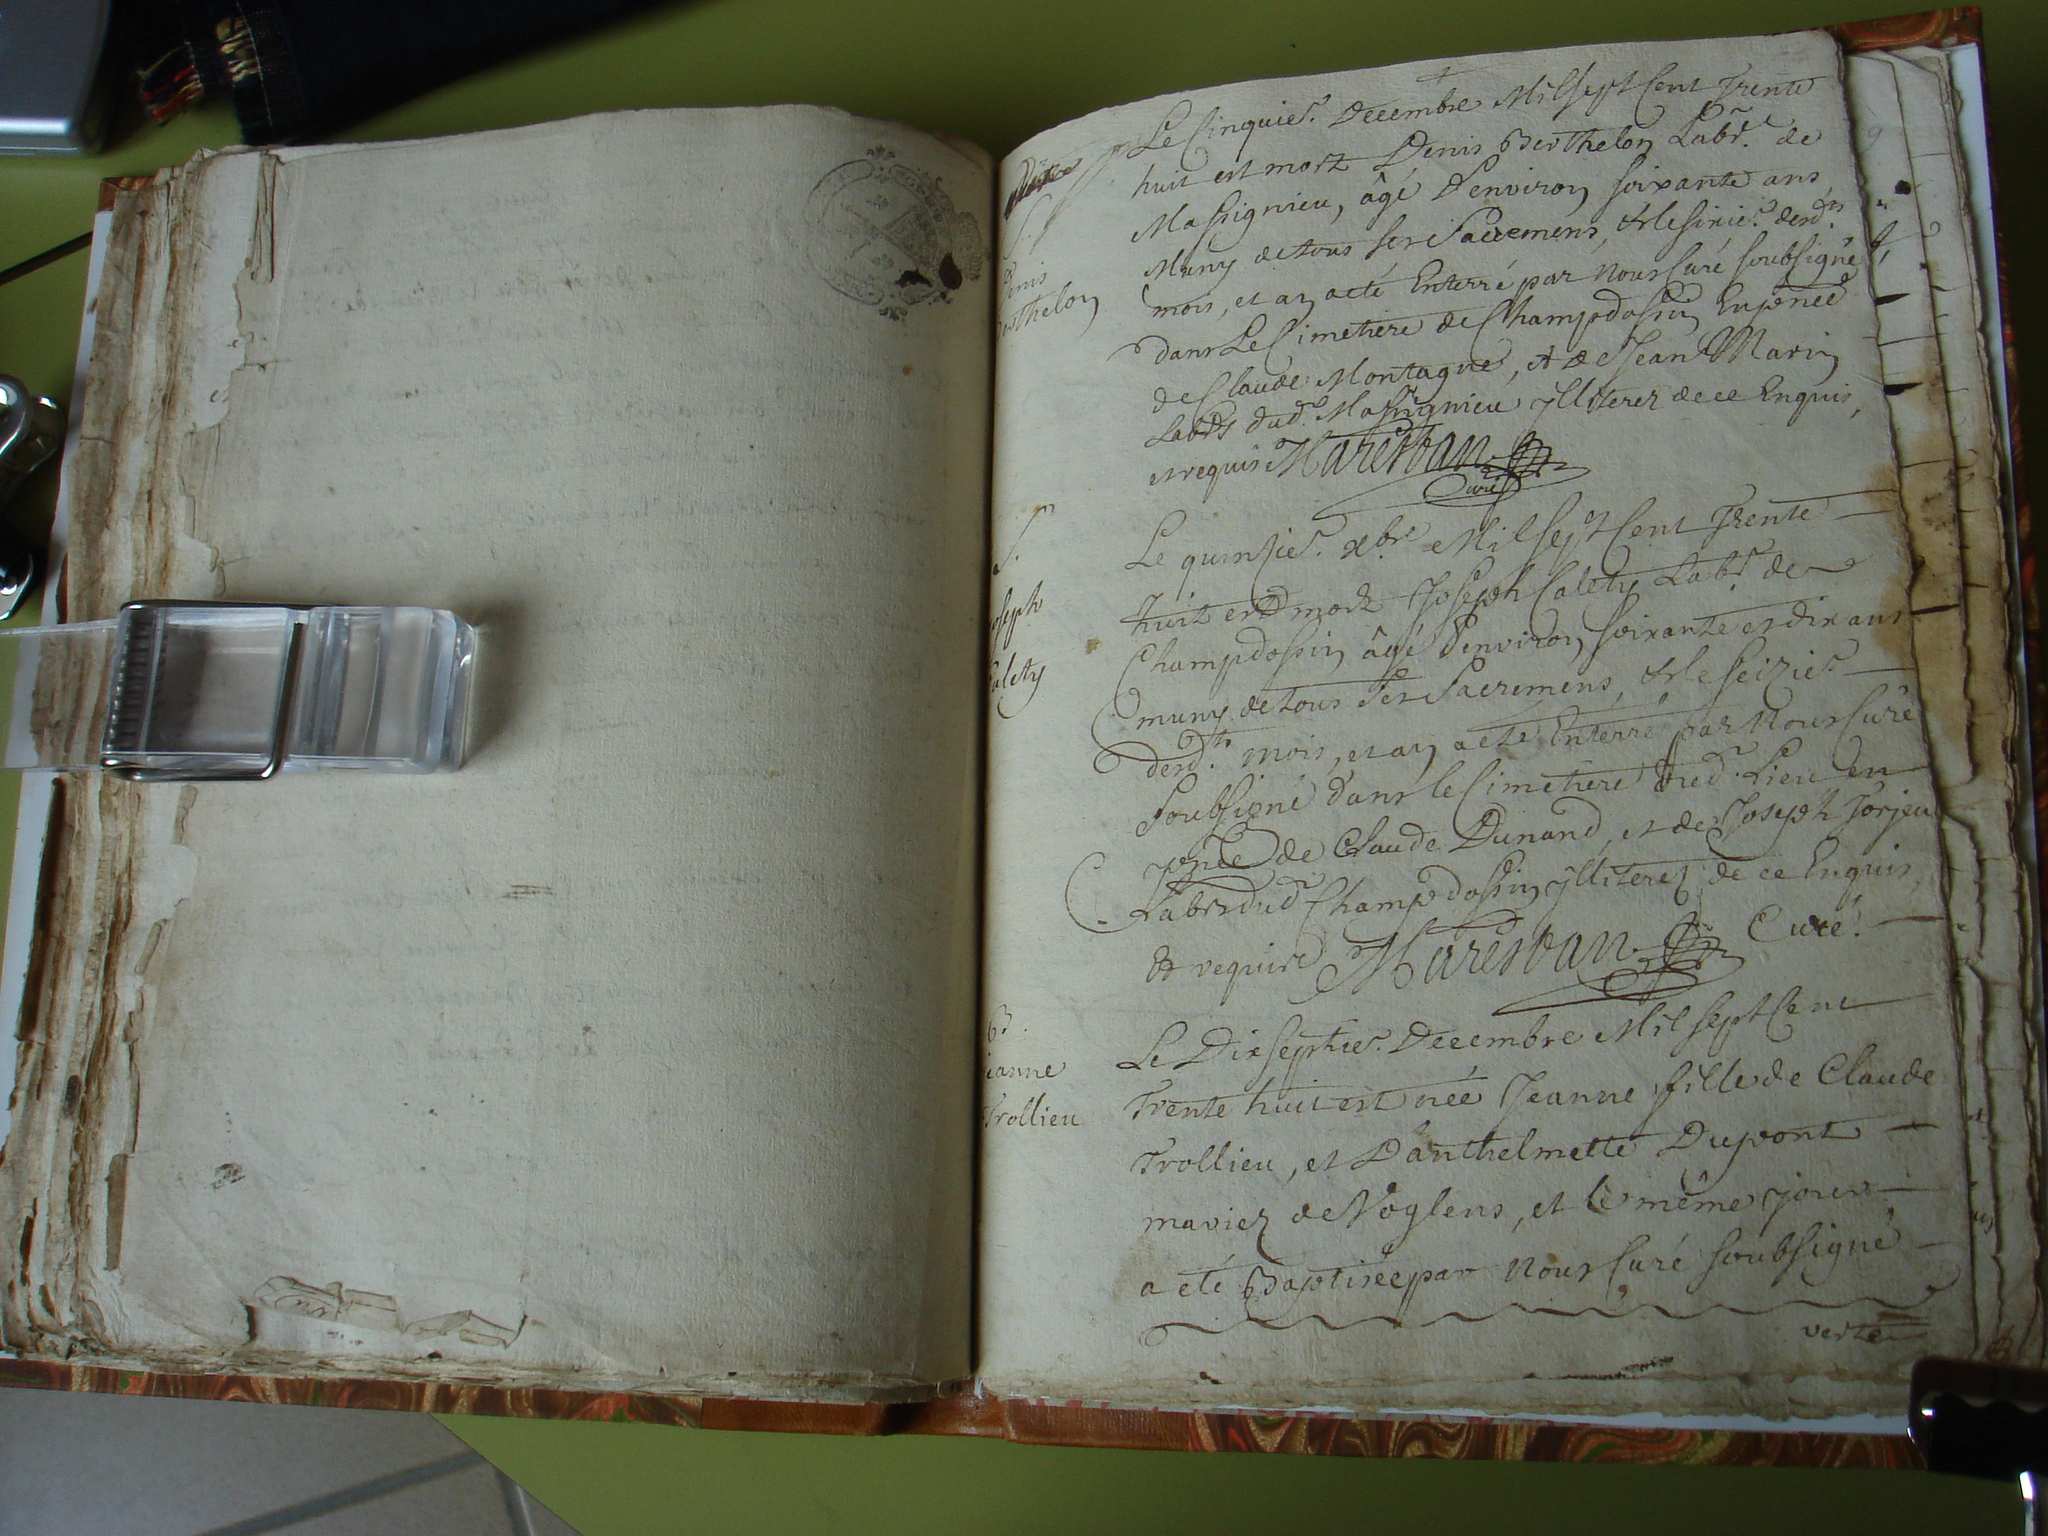 S.
Denis
Berthelon
Le Cinquies.^e Decembre Mil sept Cent Trente
huit est mort Denis Berthelon Lab.^r de
Massignieu, âgé d'environ soixante ans
Muny de tous ses Sacremens, et le sixie.^e desd.^ts
mois, et an a eté Enterré par Nous Curé soubsigné
dans Le Cimetiere de Champdossin En pñce
de Claude Montagne, et de Jean Marin
Labrs dud. Massignieu illiterez de ce Enquis,
et requis Marestan
Curé
S.
Joseph
Calety
Le quinzie.^e xbre Mil sept Cent Trente
huit est mort Joseph Calety Lab.^r de
Champdossin âgé d'environ soixante et dix ans
muny de tous ses Sacremens, et le seizie.^e
desd.^ts mois, et an a eté Enterré par Nous Curé
soubsigné dans le Cimetiere dud. Lieu en
pñce de Claude Dunand, et de Joseph
Labrs dud Champdossin illiterez de ce Enquis,
et requis Marestan Curé.
B.
Jeanne
Trollieu
Le Dixseptie.^e Decembre Mil sept Cent
Trente huit est née Jeanne fille de Claude
Trollieu, et D'anthelmette Dupont
mariez de Voglens, et le même jour
a eté Baptisée par Nous Curé soubsigné
verte